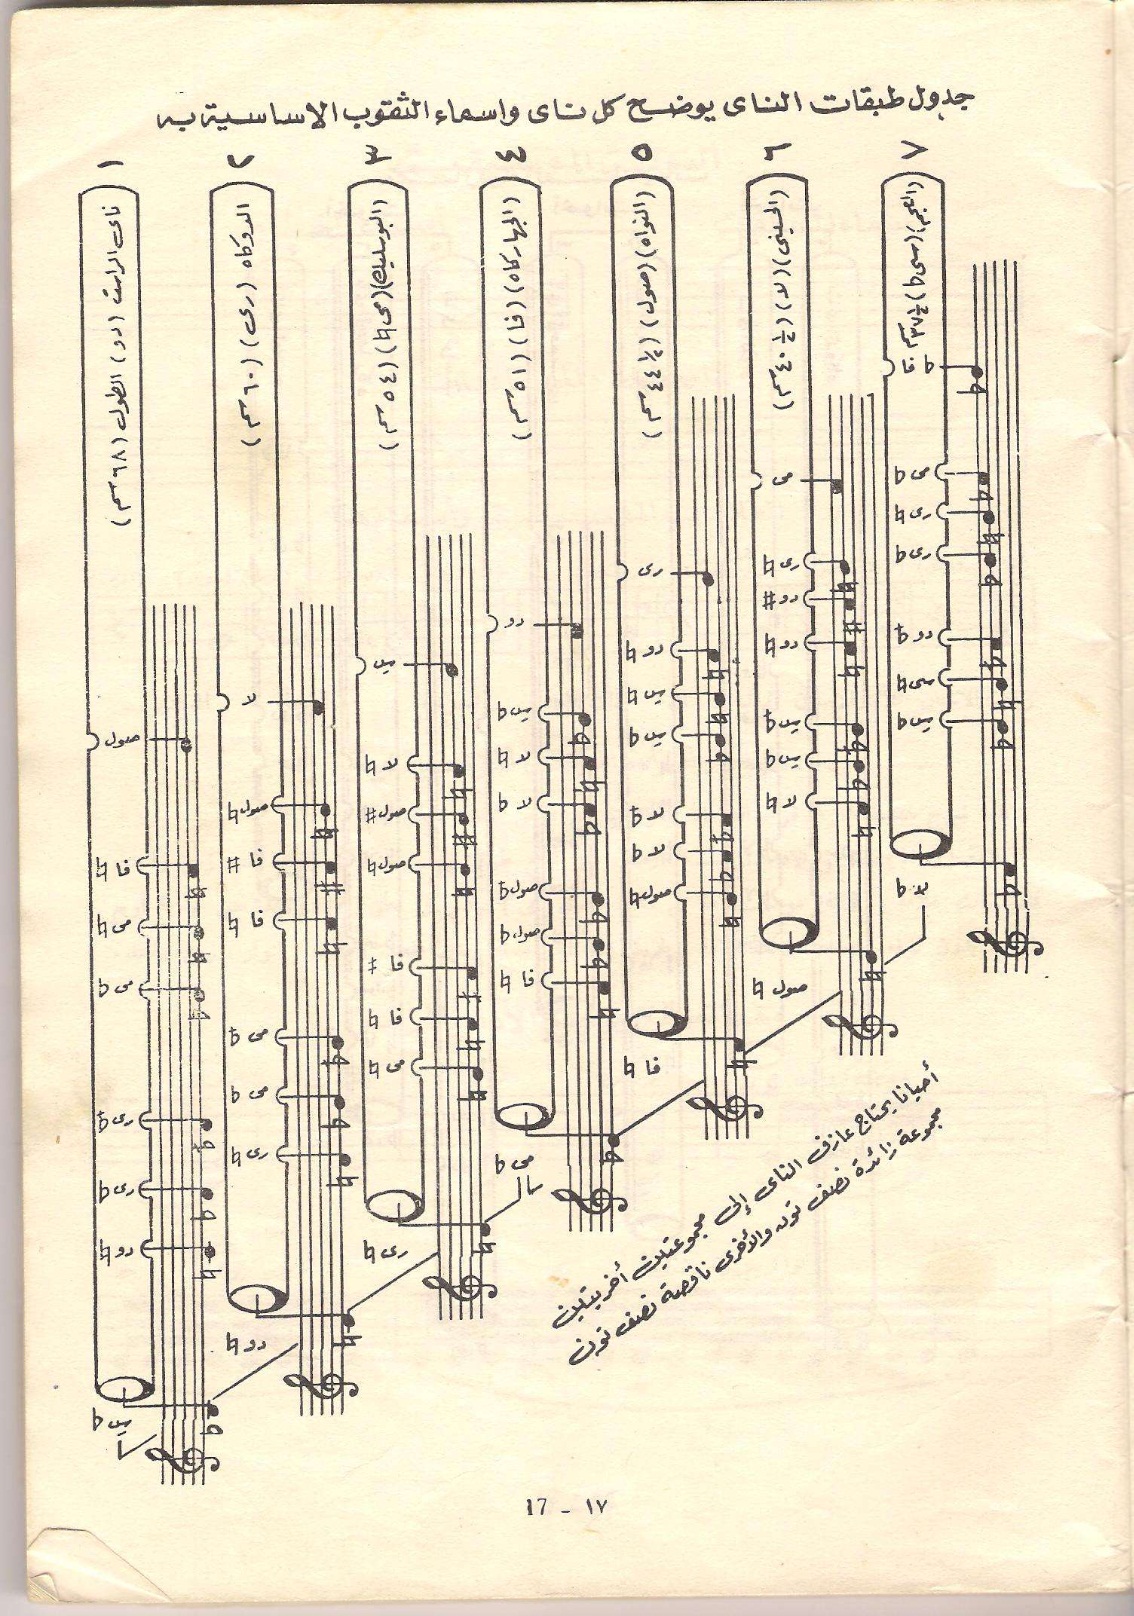 جدول طبقات الناى يوضح كل ناى واسماء الثقوب الاساسية به
١
٢
٣
٤
٥
٦
٧
ناى الراست (دو) الطول (٦٨ سم)
صول
فا ♮
مى ♮
مى b
رى
رى b
دو ♮
سى b
الدوكاه (رى) (٦٠ سم)
لا
صول ♮
فا #
فا ♮
مى
مى b
رى ♮
دو ♮
(البوسليك) (مى ♮) (٥٤ سم)
سى
لا ♮
صول #
صول ♮
فا
فا ♮
مى ♮
رى ♮
(الجهاركاه) (فا) (٥١ سم)
دو
سى b
لا ♮
لا b
صول
صول b
فا ♮
مى b
(النواه) (صول)
رى
دو ♮
سى ♮
سى b
لا
لا b
صول ♮
فا ♮
(الحسينى) (لا) (٤٠ ½ سم)
مى
رى ♮
دو #
دو ♮
سى
سى b
لا ♮
صول ♮
(العجم) (سى b) ٣٧ ½ سم
فا b
مى b
رى ♮
رى b
دو
سى ♮
سى b
لا b
أحيانا يحتاج عازف الناى إلى مجموعتين أخريتين
مجموعة زائدة نصف تون والأخرى ناقصة نصف تون
17 - ١٧